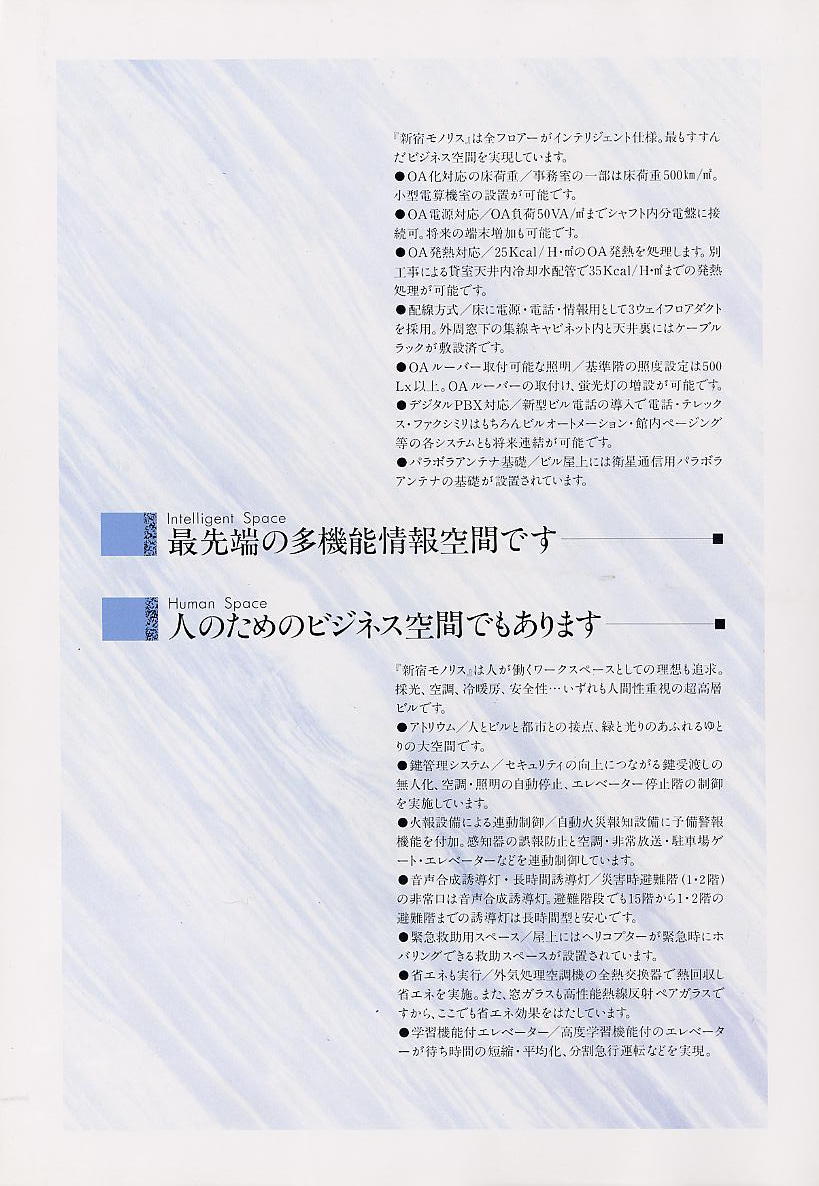 『新宿モノリス』は全フロアーがインテリジェント仕様。最もすすん
だビジネス空間を実現しています。
●OA化対応の床荷重／事務室の一部は床荷重500km/㎡。
小型電算機室の設置が可能です。
●OA電源対応／OA負荷50VA/㎡までシャフト内分電盤に接
続可。将来の端末増加も可能です。
●OA発熱対応／25Kcal/H・㎡のOA発熱を処理します。別
工事による貸室天井内冷却水配管で35Kcal/H・㎡までの発熱
処理が可能です。
●配線方式／床に電源・電話・情報用として3ウェイフロアダクト
を採用。外周窓下の集線キャビネット内と天井裏にはケーブル
ラックが敷設済です。
●OAルーバー取付可能な照明／基準階の照度設定は500
Lx以上。OAルーバーの取付け、蛍光灯の増設が可能です。
●デジタルPBX対応／新型ビル電話の導入で電話・テレック
ス・ファクシミリはもちろんビルオートメーション・館内ページング
等の各システムとも将来連結が可能です。
●パラボラアンテナ基礎／ビル屋上には衛星通信用パラボラ
アンテナの基礎が設置されています。
Intelligent Space
最先端の多機能情報空間です
Human Space
人のためのビジネス空間でもあります
『新宿モノリス』は人が働くワークスペースとしての理想も追求。
採光、空調、冷暖房、安全性…いずれも人間性重視の超高層
ビルです。
●アトリウム／人とビルと都市との接点、緑と光りのあふれるゆと
りの大空間です。
●鍵管理システム／セキュリティの向上につながる鍵受渡しの
無人化、空調・照明の自動停止、エレベーター停止階の制御
を実施しています。
●火報設備による連動制御／自動火災報知設備に予備警報
機能を付加。感知器の誤報防止と空調・非常放送・駐車場ゲ
ート・エレベーターなどを連動制御しています。
●音声合成誘導灯・長時間誘導灯／災害時避難階(1・2階)
の非常口は音声合成誘導灯。避難階段でも15階から1・2階の
避難階までの誘導灯は長時間型と安心です。
●緊急救助用スペース／屋上にはヘリコプターが緊急時にホ
バリングできる救助スペースが設置されています。
●省エネも実行／外気処理空調機の全熱交換器で熱回収し
省エネを実施。また、窓ガラスも高性能熱線反射ペアガラスで
すから、ここでも省エネ効果をはたしています。
●学習機能付エレベーター／高度学習機能付のエレベータ
ーが待ち時間の短縮・平均化、分割急行運転などを実現。